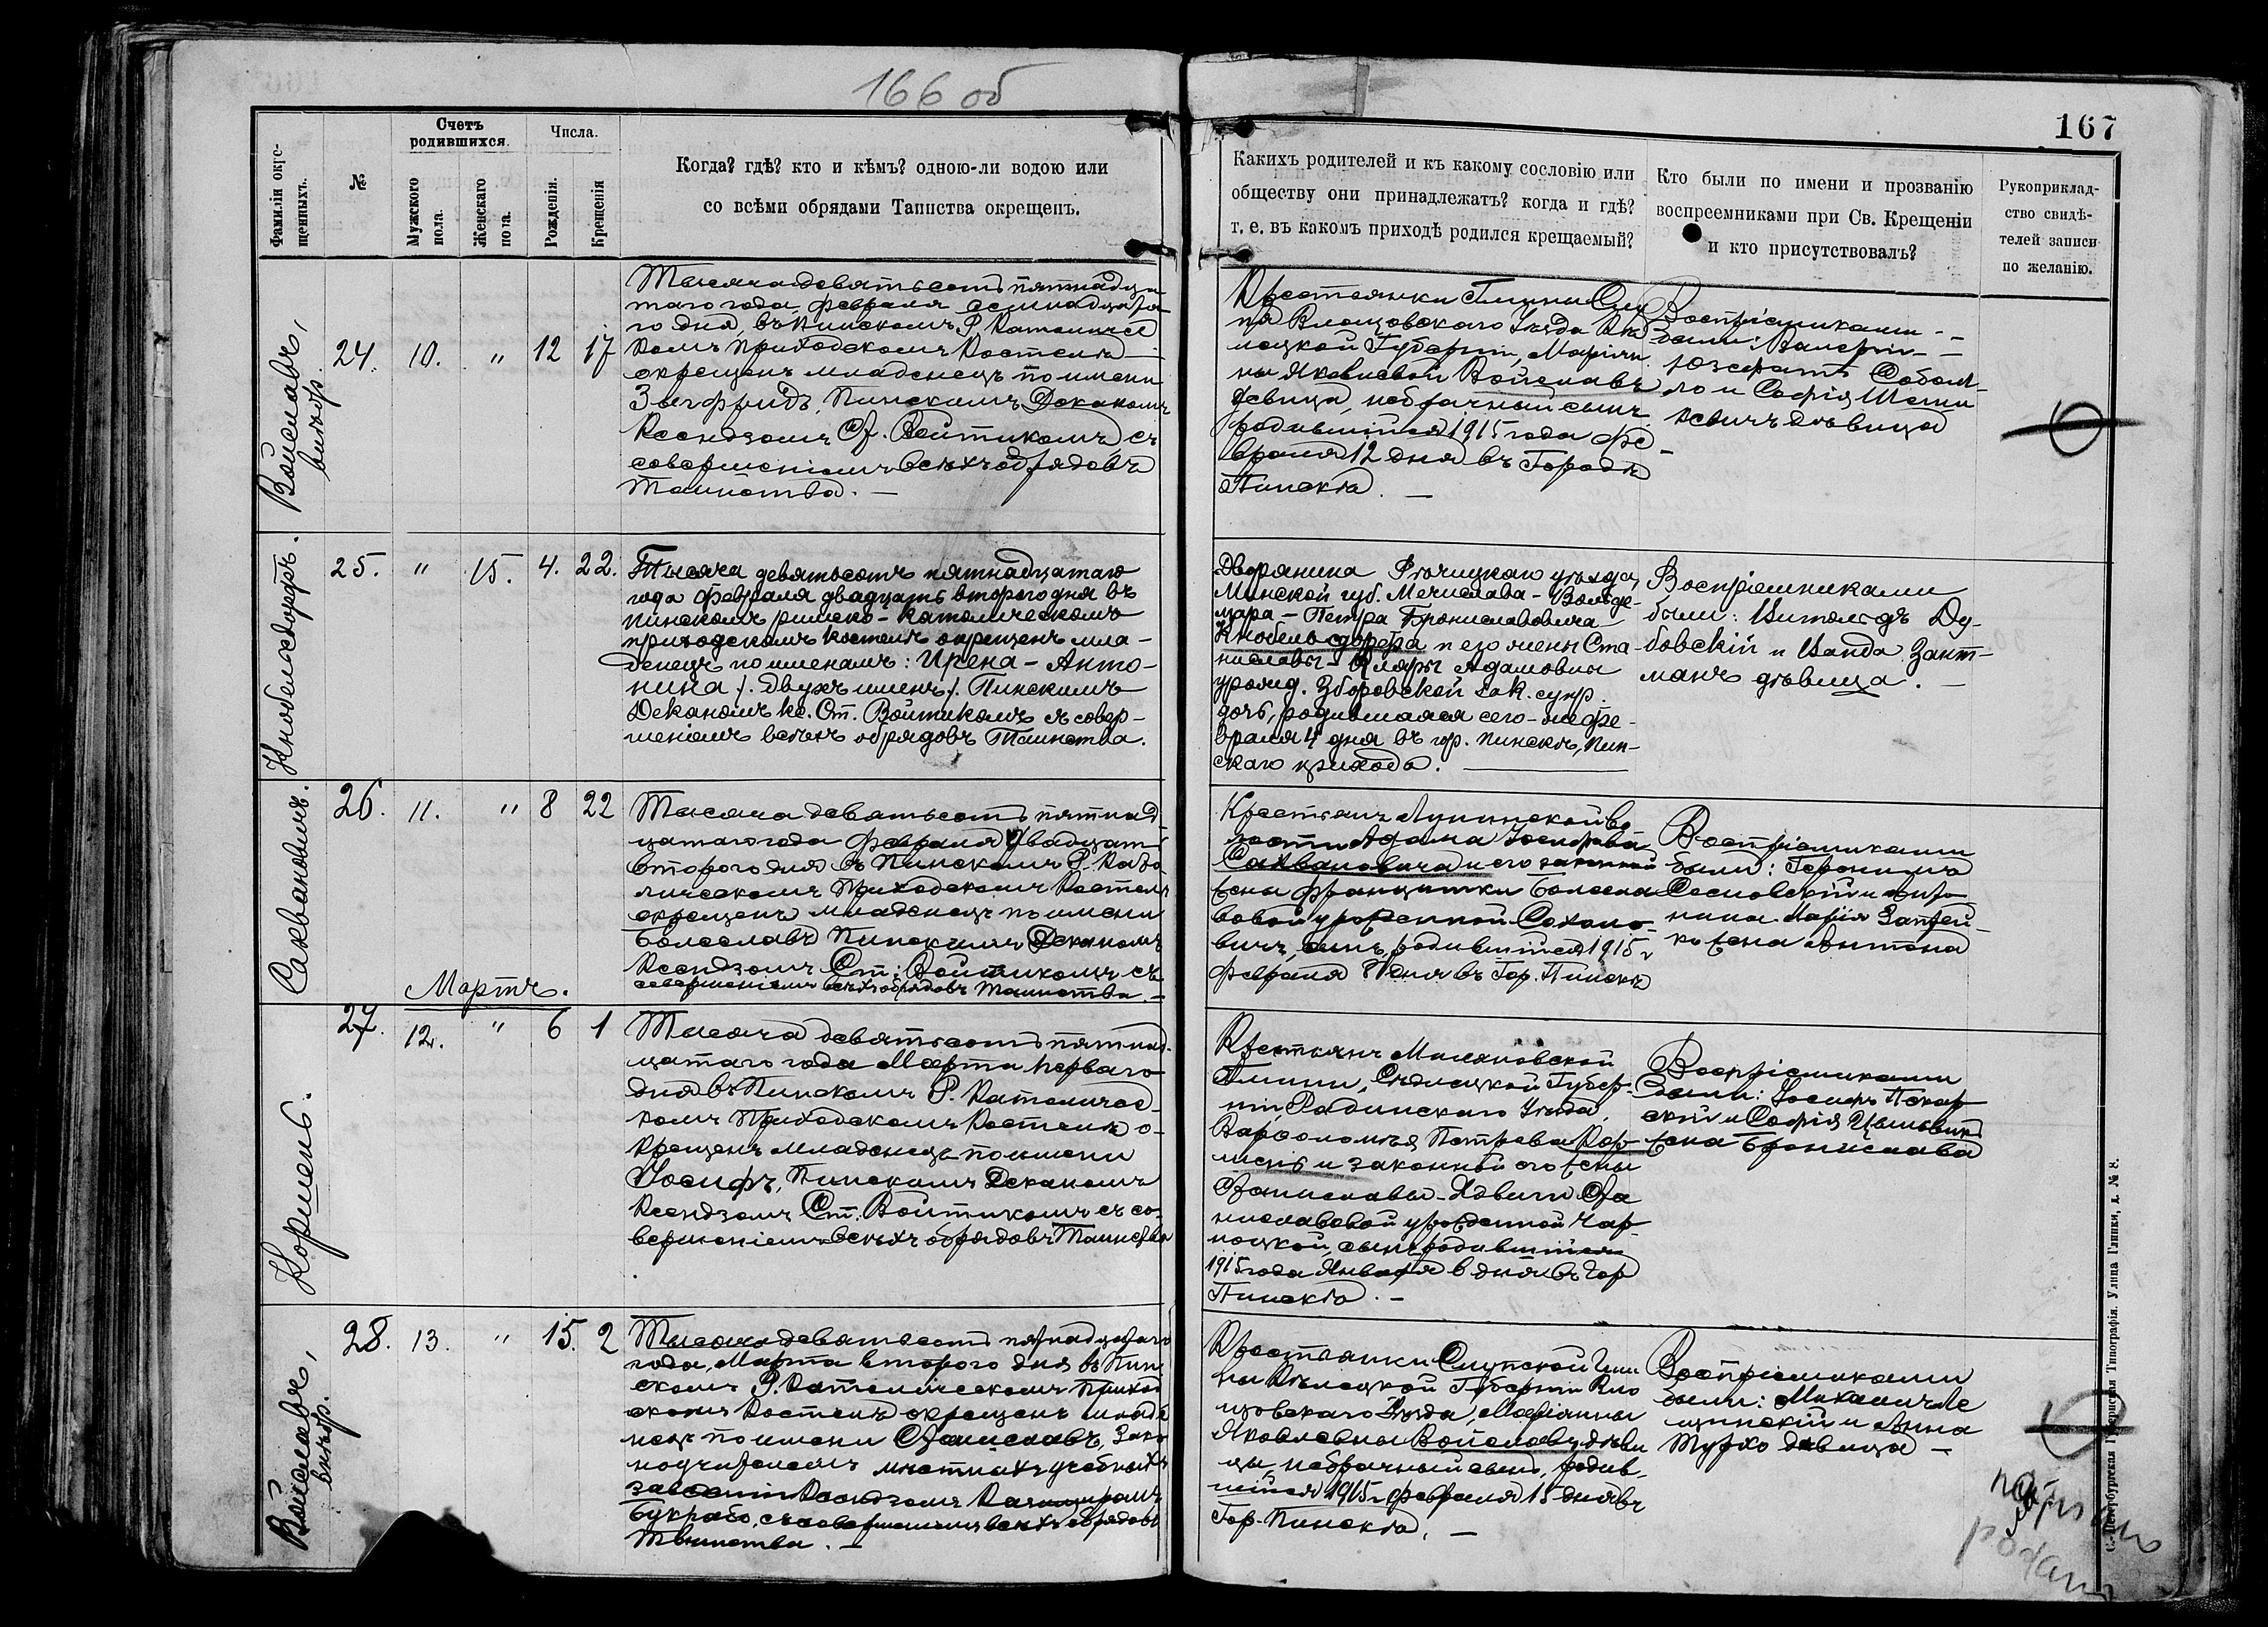 166 об
167
Фамиліи окре-
щенныхъ.
№
Счетъ
родившихся.
Мужского
пола.
Женскаго
пола.
Числа.
Рожденія.
Крещенія
Когда? гдѣ? кто и кѣмъ? одною-ли водою или
со всѣми обрядами Таинства окрещенъ.
Какихъ родителей и къ какому сословію или
обществу они принадлежатъ? когда и гдѣ?
т. е. въ какомъ приходѣ родился крещаемый?
Кто были по имени и прозванію
воспреемниками при Св. Крещеніи
и кто присутствовалъ?
Рукоприклад-
ство свидѣ-
телей записи
по желанію.
Войславъ,
внѣбр.
24. 10. " 12 17
Тысяча девятьсотъ пятнадца
таго года, февраля семнадцата
го дня, въ Пинскомъ Р. Католичес
комъ Приходскомъ Костелѣ
окрещенъ младенецъ по имени
Зыгфридъ, Пинскимъ Деканомъ
Ксендзомъ Ст. Войтикомъ съ
совершеніемъ всѣхъ обрядовъ
Таинства. —
Крестьянки Гмины Слу
пя Влощовскаго Уѣзда Кѣ
лецкой Губерніи, Маріан
ны Яковлевой Войславъ
девица, небрачный сынъ
родившійся 1915 года фе
враля 12 дня въ Городѣ
Пинскѣ. —
Воспріемниками
были: Валерій
Юзефатъ Собол
ло и Софія
девица
Кнобельсдорфъ.
25. " 15. 4. 22.
Тысяча девятьсотъ пятнадцатаго
года февраля двадцать второго дня въ
пинскомъ римско-католическомъ
приходскомъ костелѣ окрещенъ мла-
денецъ по именамъ: Ирена-Анто-
нина /. двухъ именъ /. Пинскимъ
Деканомъ кс. Ст. Войтикомъ съ совер-
шеніемъ всѣхъ обрядовъ Таинства.
Дворянина Рѣчицкаго уѣзда,
Минской губ. Мечислава-Вольде-
мара-Петра Брониславовича
Кнобельсдорфа и его жены Ста-
ниславы-Клары Адамовны
урожд. Зборовской зак. супр.
дочь, родившаяся сего-же фе-
враля 4 дня въ гор. Пинскѣ, Пин-
скаго прихода.
Воспріемниками
были: Витольдъ Ду-
бовскій и Ванда Зант-
манъ дѣвица. —
Саквановичъ.
26. 11. " 8 22
Тысяча девятьсотъ пятнад
цатаго года февраля двадцать
второго дня въ Пинскомъ Р. Като
лическомъ Приходскомъ Костелѣ
окрещенъ младенецъ по имени
Болеславъ Пинскимъ Деканомъ
Ксендзомъ Ст. Войтикомъ съ
совершеніемъ всѣхъ обрядовъ Таинства. —
Крестьянъ Лунинской во
лости Адама Іосифова
Саквановича и его законной
жены Францишки Болесла
вовой урожденной Сохано-
вичъ, сынъ, родившійся 1915 г
февраля 8 дня въ Гор. Пинскѣ
Воспріемниками
были: Геронимъ
Сосновскій и
Марія
жена Антона
Мартъ.
Кормень.
27. 12. " 6 1
Тысяча девятьсотъ пятнад-
цатаго года Марта перваго
дня въ Пинскомъ Р. Католичес
комъ Приходскомъ Костелѣ о-
крещенъ младенецъ по имени
Іосифъ, Пинскимъ Деканомъ
Ксендзомъ Ст. Войтикомъ съ со-
вершеніемъ всѣхъ обрядовъ Таинства
Крестьянъ Милановской
Гмины, Сѣдлецкой Губер-
ніи, Радинскаго Уѣзда,
Варфоломѣя Петрова Кор-
мень и законной его жены
Станиславы-Ядвиги Ста
ниславовой урожденной Чар
ноцкой, сынъ родившійся
1915 года Января 6 дня въ Гор
Пинскѣ. —
Воспріемниками
были: Іосифъ
и Софія
жена Бронислава
Войславъ,
внѣбр.
28. 13. " 15. 2
Тысяча девятьсотъ пятнадцатаго
года, Марта второго дня въ Пин
скомъ Р. Католическомъ Приход
скомъ Костелѣ окрещенъ младе
нецъ по имени Станиславъ, Зако
ноучителемъ мѣстныхъ учебныхъ
заведеній Ксендзомъ Казимиромъ
Букрабо, съ совершеніемъ всѣхъ обрядовъ
Таинства. —
Крестьянки Слупской Гми
ны Кѣлецкой Губерніи Вло
щовскаго Уѣзда, Маріанны
Яковлевны Войславъ, дѣви
цы, небрачный сынъ, родив-
шійся 1915 г. февраля 15 дня въ
Гор. Пинскѣ, —
Воспріемниками
были: Михаилъ Ле
щинскій и Анна
Турко дѣвица —
С.-Петербургская Губернская Типографія. Улица Глинки, д. № 8.